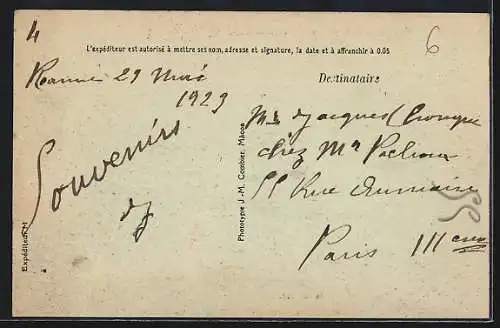 4
6
L'expéditeur est autorisé à mettre ses nom, adresse et signature, la date et à affranchir à 0.05
29 Mai
1929
Destinataire
Souvenirs
Mr Jacques
chez Mr
55 Rue
Paris IIIeme
Expéditeur M
Phototype J.-M. Combier, Mâcon